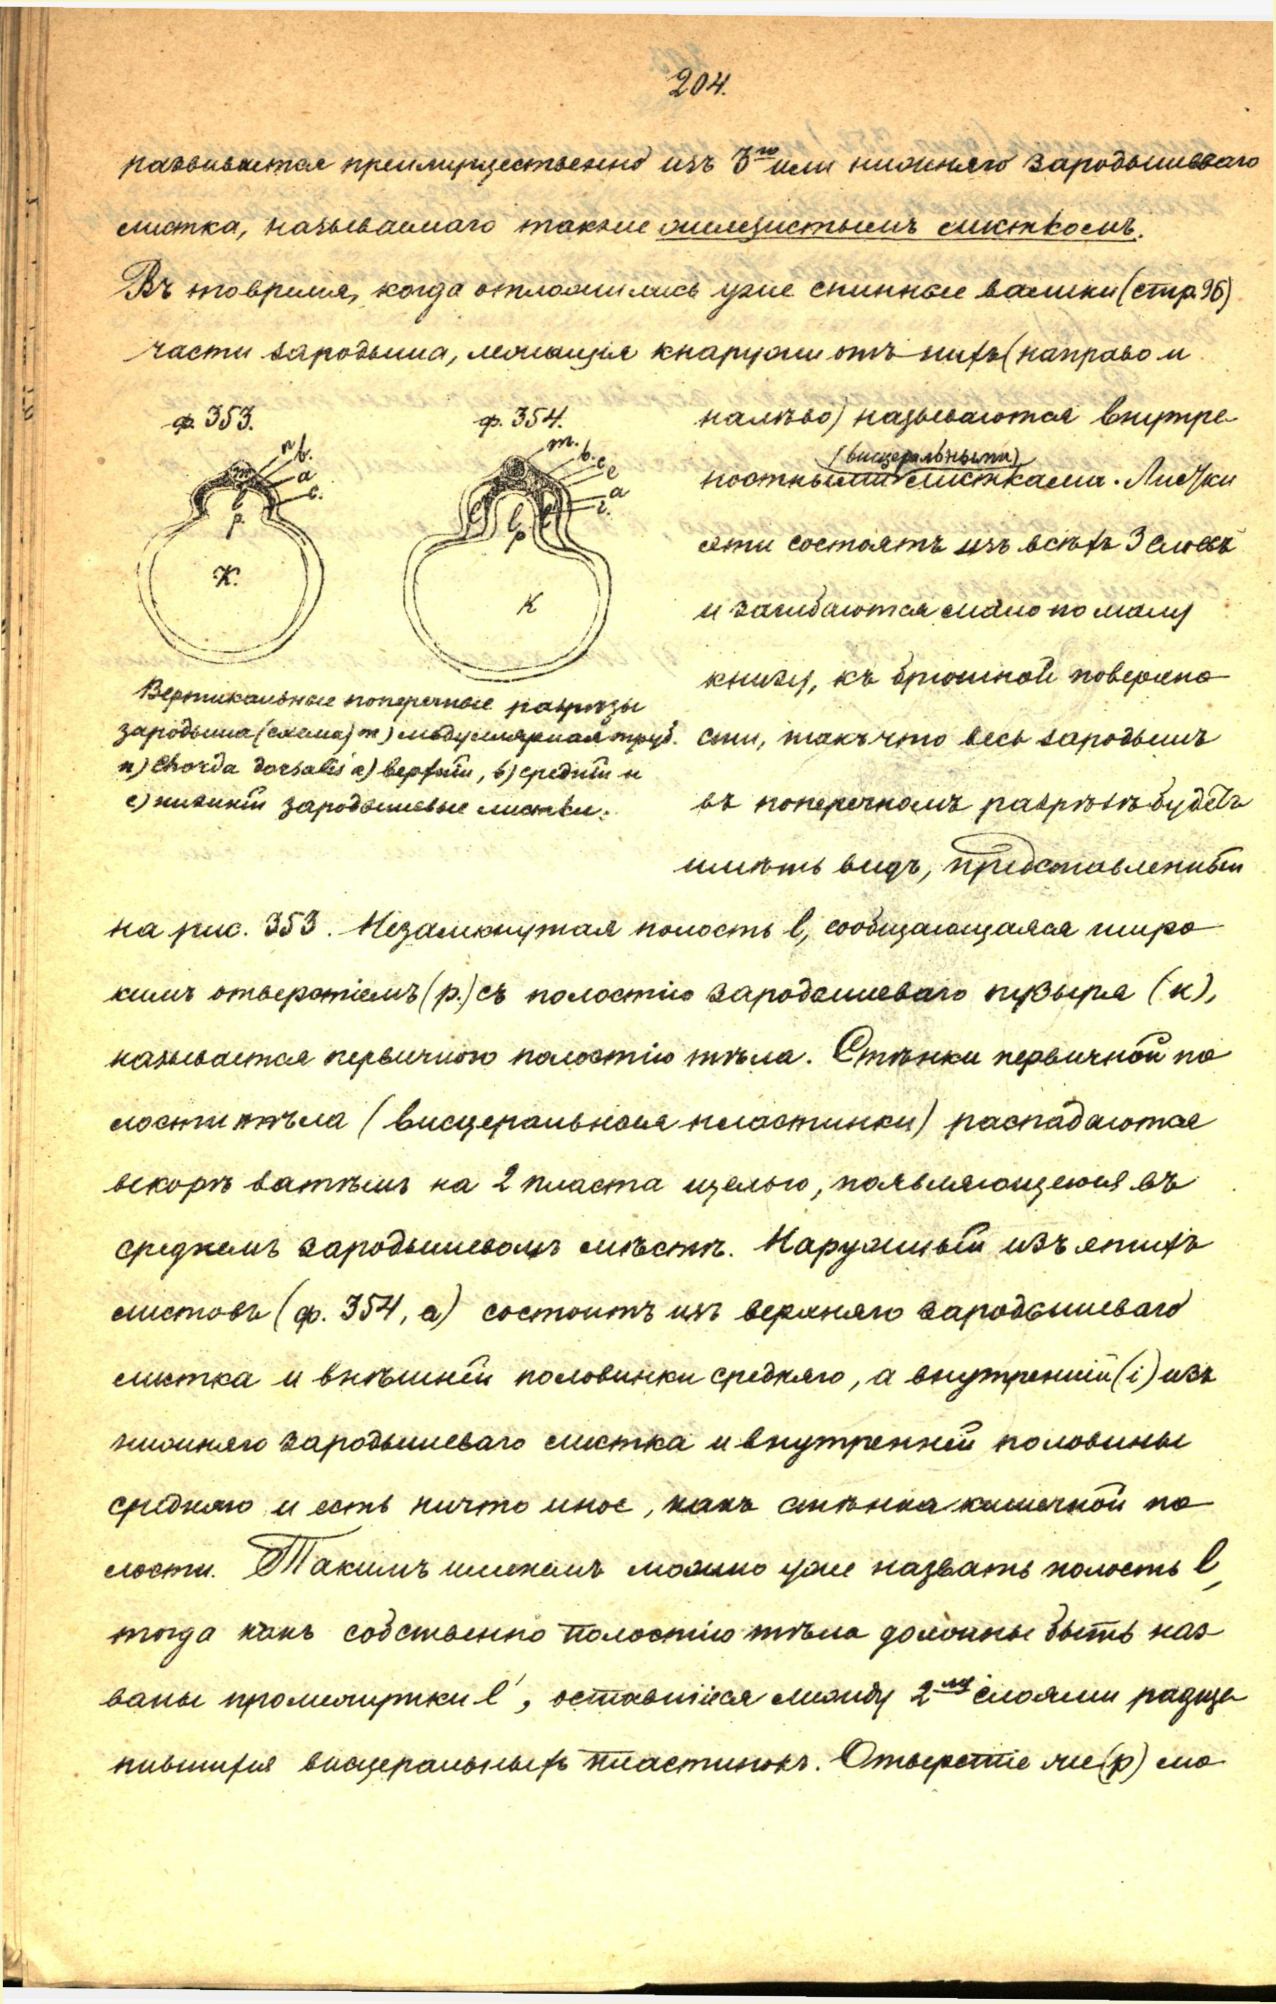 204.
развивается преимущественно изъ 3го или нижняго зародышеваго
листка, называемаго также железистымъ листкомъ.
Въ то время, когда отложились уже спинные валики (стр. 96)
части зародыша, лежащія кнаружи отъ нихъ (направо и
ф. 353.
n. b. a c. m l p. К.
ф. 354.
m. b. c e a i. l p К
Вертикальные поперечные разрѣзы
зародыша (схема) m) медуллярная труб.
n) Chorda dorsalis a) верхній, b) средній и
c) нижній зародышевые листки.
налѣво) называются внутре-
(висцеральными)
ностными листками. Листки
эти состоятъ изъ всѣхъ 3 слоевъ
и загибаются мало по малу
книзу, къ брюшной поверхно-
сти, такъ что весь зародышъ
въ поперечномъ разрѣзѣ будетъ
имѣть видъ, представленный
на рис. 353. Незамкнутая полость l, сообщающаяся широ-
кимъ отверстіемъ (p.) съ полостію зародышеваго пузыря (к),
называется первичною полостію тѣла. Стѣнки первичной по-
лости тѣла (висцеральныя пластинки) распадаются
вскорѣ затѣмъ на 2 пласта щелью, появляющеюся въ
среднемъ зародышевомъ мѣстѣ. Наружный изъ этихъ
листовъ (ф. 354, a) состоитъ изъ верхняго зародышеваго
листка и внѣшней половинки средняго, а внутренній (i) изъ
нижняго зародышеваго листка и внутренней половины
средняго и есть ничто иное, какъ стѣнка кишечной по-
лости. Такимъ именемъ можно уже назвать полость l,
тогда какъ собственно полостію тѣла должны быть наз-
ваны промежутки l', оставшіеся между 2мя слоями расще-
пившихся висцеральныхъ пластинокъ. Отверстіе же (p) мо-